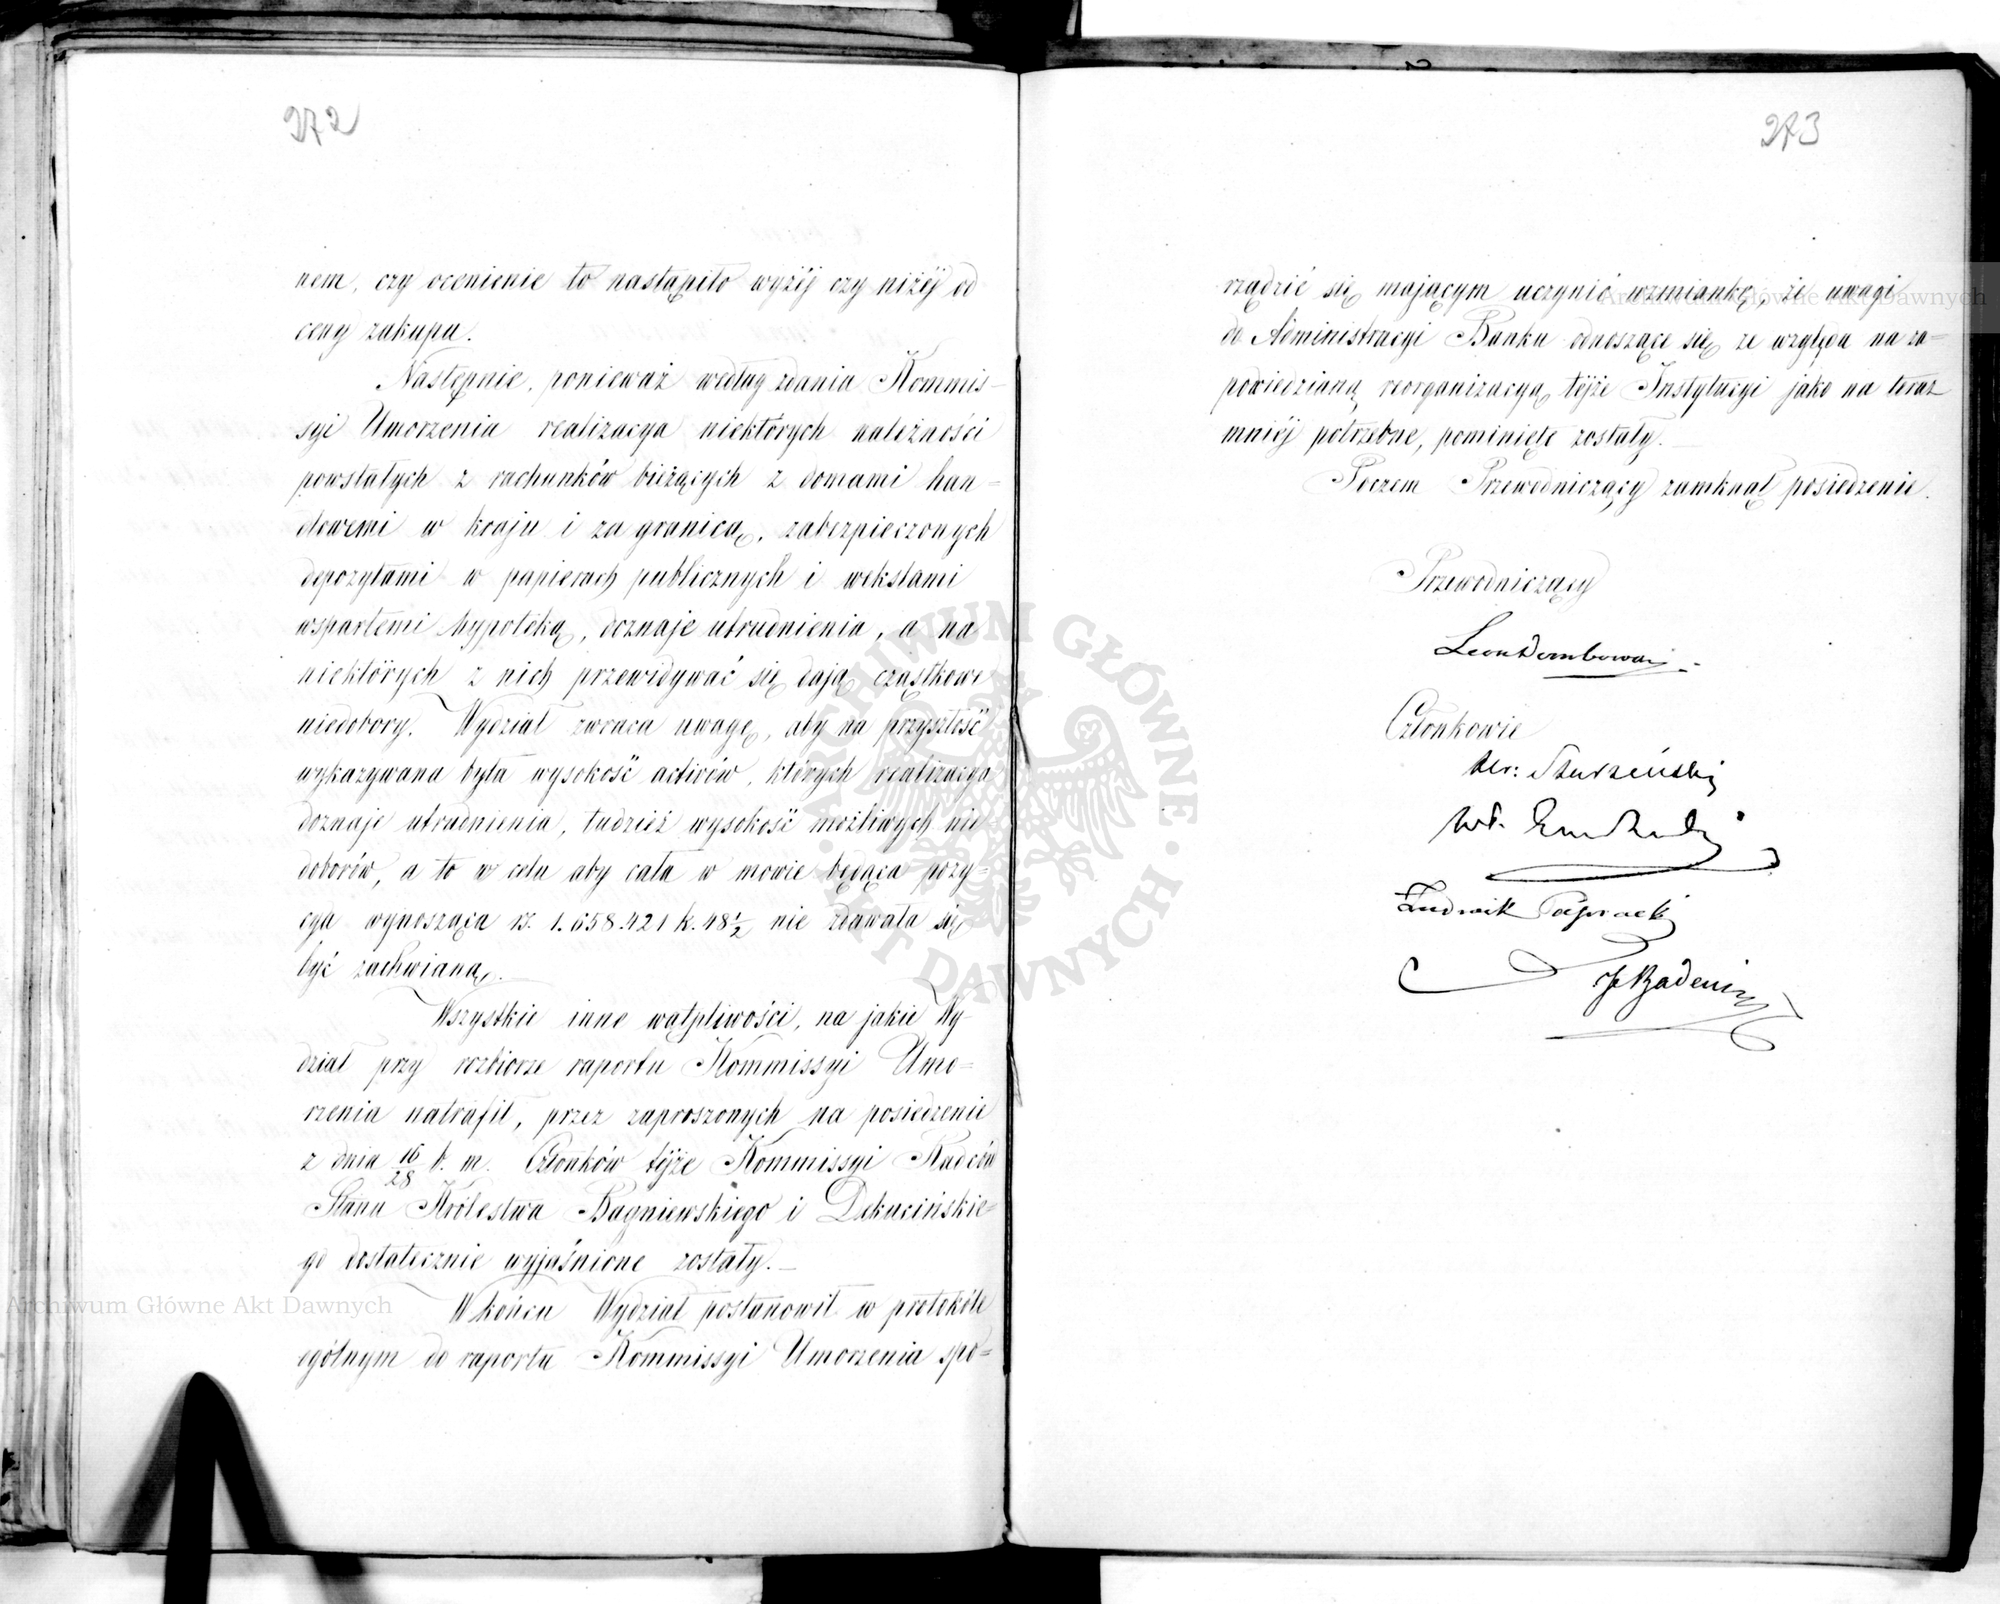 272
nem, czy ocenienie to nastąpiło wyżéj czy niżéj od
ceny zakupu.
Następnie, ponieważ według zdania Kommis-
syi Umorzenia realizacya niektórych należności
powstałych z rachunków bieżących z domami han-
dlowemi w kraju i za granicą, zabezpieczonych
depozytami w papierach publicznych i wekslami
wspartemi hypoteką, doznaje utrudnienia, a na
niektórych z nich przewidywać się dają cząstkowe
niedobory. Wydział zwraca uwagę, aby na przyszłość
wykazywana była wysokość activów, których realizacya
doznaje utrudnienia, tudzież wysokość możliwych nie
doborów, a to w celu aby cała w mowie będąca pozy-
cya wynosząca rs. 1.658.421 k. 48½ nie zdawała się
być zachwianą.
Wszystkie inne wątpliwości, na jakie Wy-
dział przy rozbiorze raportu Kommissyi Umo-
rzenia natrafił, przez zaproszonych na posiedzenie
z dnia 16/28 b. m. Członków téjże Kommissyi Radców
Stanu Królestwa Bagniewskiego i Dekucińskie-
go dostatecznie wyjaśnione zostały.
W końcu Wydział postanowił w protokóle
ogólnym do raportu Kommissyi Umorzenia spo-
273
rządzić się mającym uczynić wzmiankę, że uwagi
do Administracyi Banku odnoszące się ze względu na za-
powiedzianą reorganizacyą téjże Instytucyi jako na teraz
mniéj potrzebne, pominięte zostały.
Poczem Przewodniczący zamknął posiedzenie.
Przewodniczący
Leon Dembowski
Członkowie
Ludwik
J Badeni
ARCHIWUM GŁÓWNE AKT DAWNYCH
Archiwum Główne Akt Dawnych
Archiwum Główne Akt Dawnych